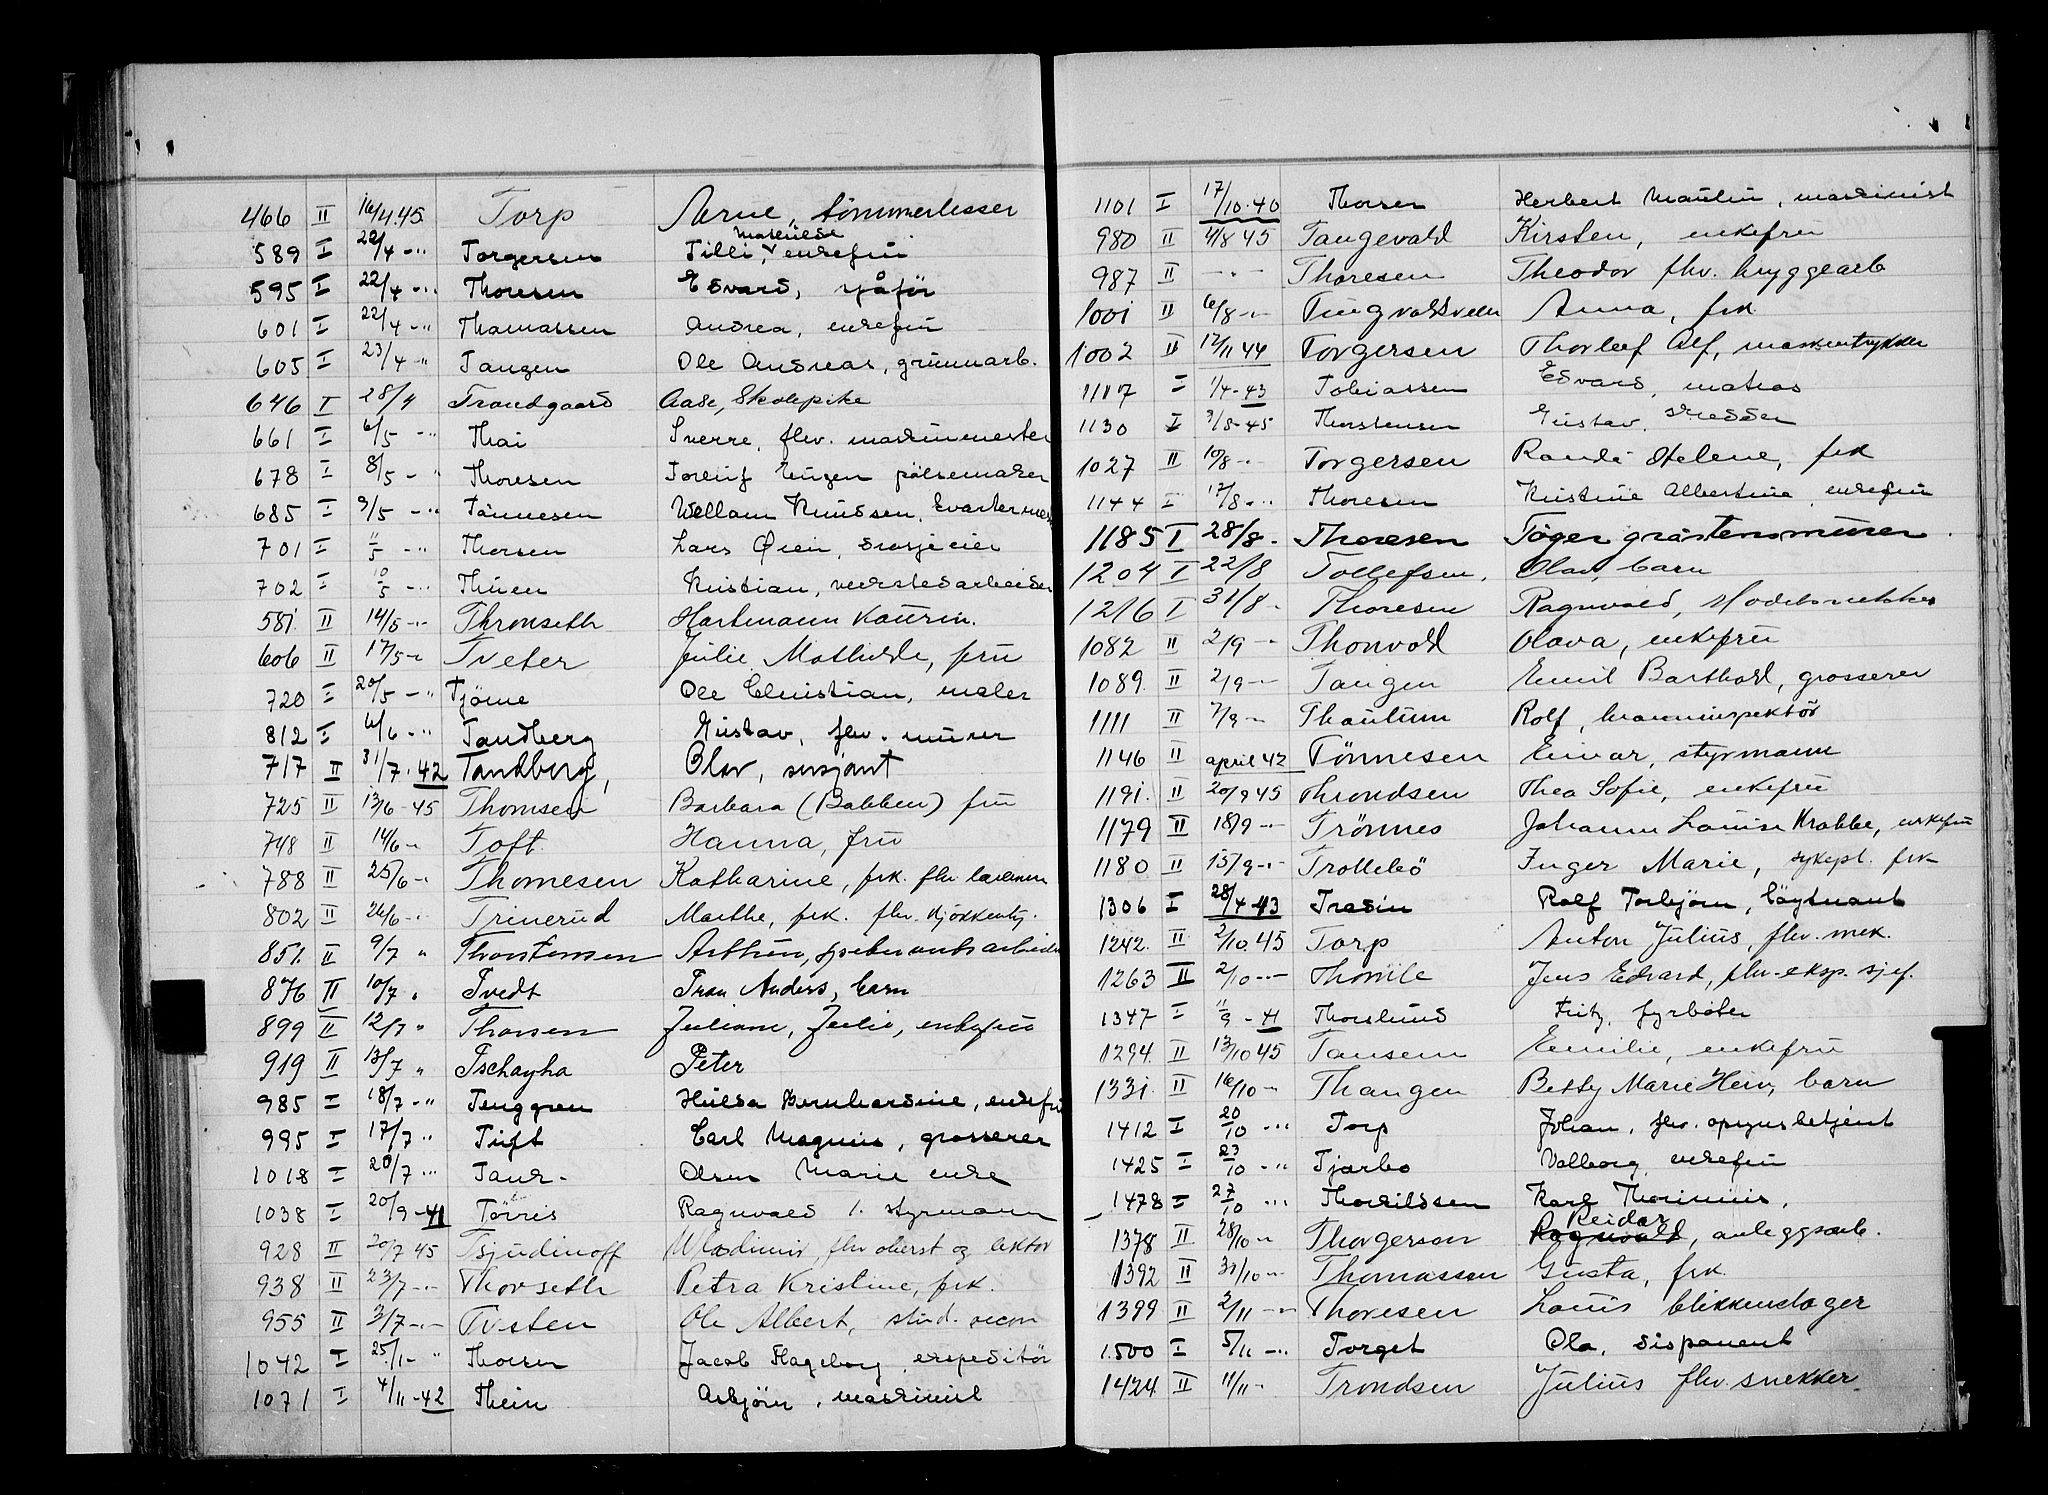 466 II 16/4.45. Torp Arne, tömmerhesser
589 I 22/4 -"- Torgersen Tilli, Mathilde enkefru
595 I 22/4 -"- Thoresen Edvard, sjåför
601 I 22/4 -"- Thomassen Andrea, enkefru
605 I 23/4 -"- Tangen Ole Andreas, grünnarb.
646 I 28/4 Trandgaard Aase, Skolepike
661 I 6/5 -"- Thai Sverre, fhv. maskinmester
678 I 8/5 -"- Thoresen Torleif Eugen pölsemaker
685 I 9/5 -"- Tönnesen Wellam Knudsen, kvartermes
701 I 11/5 -"- Thorsen Lars Örein, drosjeeier
702 I 10/5 -"- Thuen Kristian, verkstedarbeider
581. II 14/5 -"- Thronseth Hartmann Kaurin.
606 II 17/5 -"- Tveter Julie Mathilde, fru
720 I 20/5 -"- Tjöme Ole Christian, maler
812 I 6/6 -"- Tandberg Gustav, fhv. murer
717 II 31/7.42 Tandberg, Olav, sersjant
725 II 13/6-45 Thomsen Barbara (Babben) fru
748 II 14/6 -"- Toft. Hanna, fru
788 II 25/6 -"- Thomesen Katharine, frk. fhv. lærerinne
802 II 26/6 -"- Trinerud Marthe, frk. fhv. kjökkenbj.
851. II 9/7 " Thorstensen Arthur, sprebrants arbeider
876 II 10/7 " Tvedt Tron Anders, barn
899 II 12/7 " Thorsen Juliane, Julie, enkefru
919 II 13/7 " Tschayka Peter
985 I 18/7 -"- Tenggren Hulda Bernhardine, enkefru
995 I 17/7 -"- Tuft Carl Magnus, grosserer
1018 I 20/7 -"- Tand- Olsen Marie enke
1038 I 20/9-41 Törris Ragnvald 1. styrmann
928 II 20/7 45 Tsjudinoff Wladimir, fhv. oberst og lektor
938 II 23/7 -"- Thorseth Petra Kristine, frk.
955 II 3/7 -"- Tvsten Ole Albert, stud. oecon
1042 I 25/1- " Thorsen Jacob Hageborg, ekspeditör
1071 I 4/11-42 Thein Asbjörn, maskinist
1101 I 17/10.40 Thorsen Herbert Mautin, maskinist
980 II 4/8 45 Tangevald Kirsten, enkefru
987 II -"- Thoresen Theodor fhv. bryggearb
1001 II 6/8 -"- Tingvoldsveen Anna, frk.
1002 II 12/11 44 Torgersen Thorleif Alf, maskintrykker
1117 I 1/4-43 Tobiassen Edvard, matros
1130 I 3/8-45 Thorstensen Gustav, skredder
1027 II 10/8 -"- Torgersen Randi Helene, frk
1144 I 17/8 -"- Thoresen Kristine Albertine enkefru
1185 I 28/8 - Thoresen Töger gråstensmurer
1204 I 22/8 Tollefsen, Olav, barn
1216 I 31/8 - Thoresen Ragnvald, Modelsnekker
1082 II 2/9 -"- Thonvold Olava, enkefru
1089. II 2/9 -"- Tangen Emil Barthold, grosserer
1111 II 7/9 -"- Thaulum Rolf, branninspektör
1146 II april 42 Tönnesen Einar, styrmann
1191. II 20/9 45 Throndsen Thea Sofie, enkefru
1179 II 18/9 -"- Trönnes Johanne Louise Krabbe, enkefru
1180 II 15/9 -"- Trollebö Inger Marie, sykepl. frk
1306 I 28/4 43 Trasin Rolf Torbjörn, löytnant
1242. II 2/10.45 Torp Anton Julius, fhv. mek.
1263 II 2/10 -"- Thomle Jens Edvard, fhv. eksp. sjef.
1347 I 11/9 - 41 Thorslund Fritz, fyrböter
1294. II 13/10 45 Tansem Emilie, enkefru
1331. II 16/10 -"- Thangen Betty Marie Hein, barn
1412 I 20/10 -"- Torp Johan, fhv. opsynsbetjent
1425 I 23/10 -"- Tjarbo Valborg, enkefru
1478 I 27/10 -"- Thorildssen Karl Thorinius,
1378 II 28/10 -"- Thorgersen Ragnvald Reidar, anleggsarb.
1392 II 30/10 -"- Thomassen Gusta, frk.
1399 II 2/11 -"- Thoresen Louis blikkenslager
1500 I 5/11 -"- Torget Ola, disponent
1424 II 11/11 - Trondsen Julius fhv. snekker